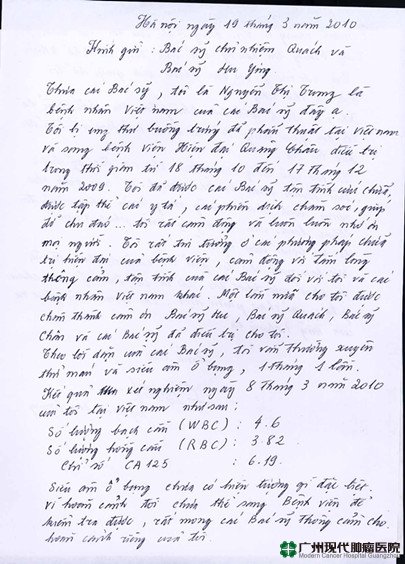 Hà nội ngày 19 tháng 3 năm 2010
Kính gửi : Bác sỹ chủ nhiệm Quách và
Bác sỹ Hu Ying.
Thưa các Bác sỹ, tôi là Nguyễn Thị Trung là
bệnh nhân Việt nam của các Bác sỹ đây ạ.
Tôi bị ung thư buồng trứng đã phẫu thuật tại việt nam
và sang bệnh viện Hiện đại Quảng Châu điều trị
trong thời gian từ 18 tháng 10 đến 17 tháng 12
năm 2009. Tôi đã được các Bác sỹ tận tình cứu chữa,
được tập thể các y tá, các phiên dịch chăm sóc, giúp
đỡ chu đáo... tôi rất cảm động và luôn luôn nhớ ơn
mọi người. Tôi rất tin tưởng ở các phương pháp chữa
trị hiện đại của bệnh viện, cảm động với tấm lòng
thông cảm, tận tình của các Bác sỹ đối với tôi và các
bệnh nhân Việt nam khác. Một lần nữa cho tôi được
chân thành cảm ơn Bác sỹ Hu, Bác sỹ Quách, Bác sỹ
Chân và các Bác sỹ đã điều trị cho tôi.
Theo lời dặn của các Bác sỹ, tôi vẫn thường xuyên
thử máu và siêu âm ổ bụng, 1 tháng 1 lần.
Kết quả xét nghiệm ngày 8 tháng 3 năm 2010
của tôi tại việt nam như sau :
Số lượng bạch cầu (WBC) : 4.6
Số lượng hồng cầu (RBC) : 3.82
Chỉ số CA125 : 6.19.
Siêu âm ổ bụng chưa có hiện tượng gì đặc biệt.
vì hoàn cảnh tôi chưa thể sang Bệnh viện để
kiểm tra được, rất mong các Bác sỹ thông cảm cho
hoàn cảnh riêng của tôi.
广州现代肿瘤医院
Modern Cancer Hospital Guangzhou